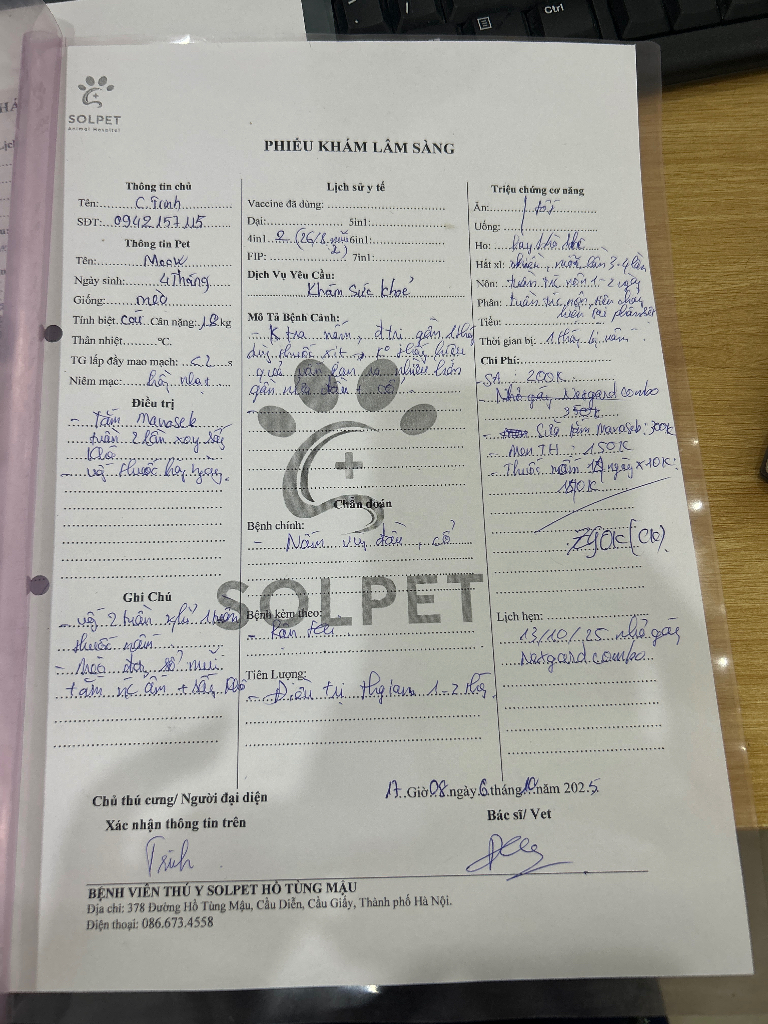 Ctrl
SOLPET
Animal Hospital
PHIẾU KHÁM LÂM SÀNG
Thông tin chủ
Tên: C. Trinh
SĐT: 0942157115
Thông tin Pet
Tên: Meow
Ngày sinh: 4 Tháng
Giống: mèo
Tính biệt: cái Cân nặng: 1,8 kg
Thân nhiệt ℃.
TG lấp đầy mao mạch: < 2 s
Niêm mạc: hồng nhạt
Điều trị
- Tắm Maroseb
tuần 2 lần xoy sấy
khô
- uống thuốc hàng ngày
Ghi Chú
- uống 2 tuần nghỉ 1 tuần
thuốc nấm
tắm nc ấm + sấy khô
Lịch sử y tế
Vaccine đã dùng:
Dại: 5in1:
4in1 2 (26/8 mũi 2) 6in1:
FIP: 7in1:
Dịch Vụ Yêu Cầu:
Khám sức khoẻ
Mô Tả Bệnh Cảnh:
- K tra nấm, đ trị gần 1 thg
dùng thuốc xịt, ko thấy hiệu
quả vẫn lan ra nhiều hơn
gần như đầu, cổ
Chẩn đoán
Bệnh chính:
- Nấm vùng đầu, cổ
SOLPET
Bệnh kèm theo:
Tiên Lượng:
- Điều trị thgian 1-2 thg
Triệu chứng cơ năng
Ăn: tốt
Uống:
Ho: hay khò khè
Hắt xì: nhiều, ngày lần 3-4 lần
Nôn: tuần trc nôn 1-2 ngày
Phân: tuần trc nôn, tiêu chảy
hiện tại phân
Tiểu:
Thời gian bị: 1 thg bị nấm
Chi Phí:
- SA: 200K
- Nhỏ gáy Nexgard combo
350k
- Sữa tắm Maroseb: 300K
- Men TH: 150K
- Thuốc nấm 14 ngày x 10K:
140K
790K (CK)
Lịch hẹn:
13/10/25 nhỏ gáy
Nexgard combo
17 Giờ 08 ngày 6 tháng 10 năm 2025
Chủ thú cưng/ Người đại diện
Xác nhận thông tin trên
Bác sĩ/ Vet
Trinh
BỆNH VIỆN THÚ Y SOLPET HỒ TÙNG MẬU
Địa chỉ: 378 Đường Hồ Tùng Mậu, Cầu Diễn, Cầu Giấy, Thành phố Hà Nội.
Điện thoại: 086.673.4558